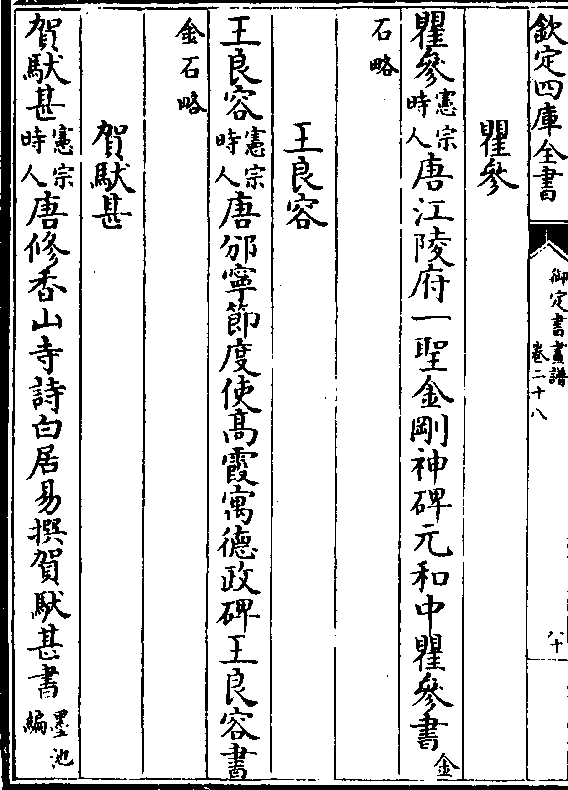 欽定四庫全書
御定書畫譜
卷二十八
八十
瞿參
瞿參憲宗時人唐江陵府一聖金剛神碑元和中瞿參書金
石略
王良容
王良容憲宗時人唐邠寧節度使高霞寓德政碑王良容書
金石略
賀䭾甚
賀䭾甚憲宗時人唐修香山寺詩白居易撰賀䭾甚書墨池編